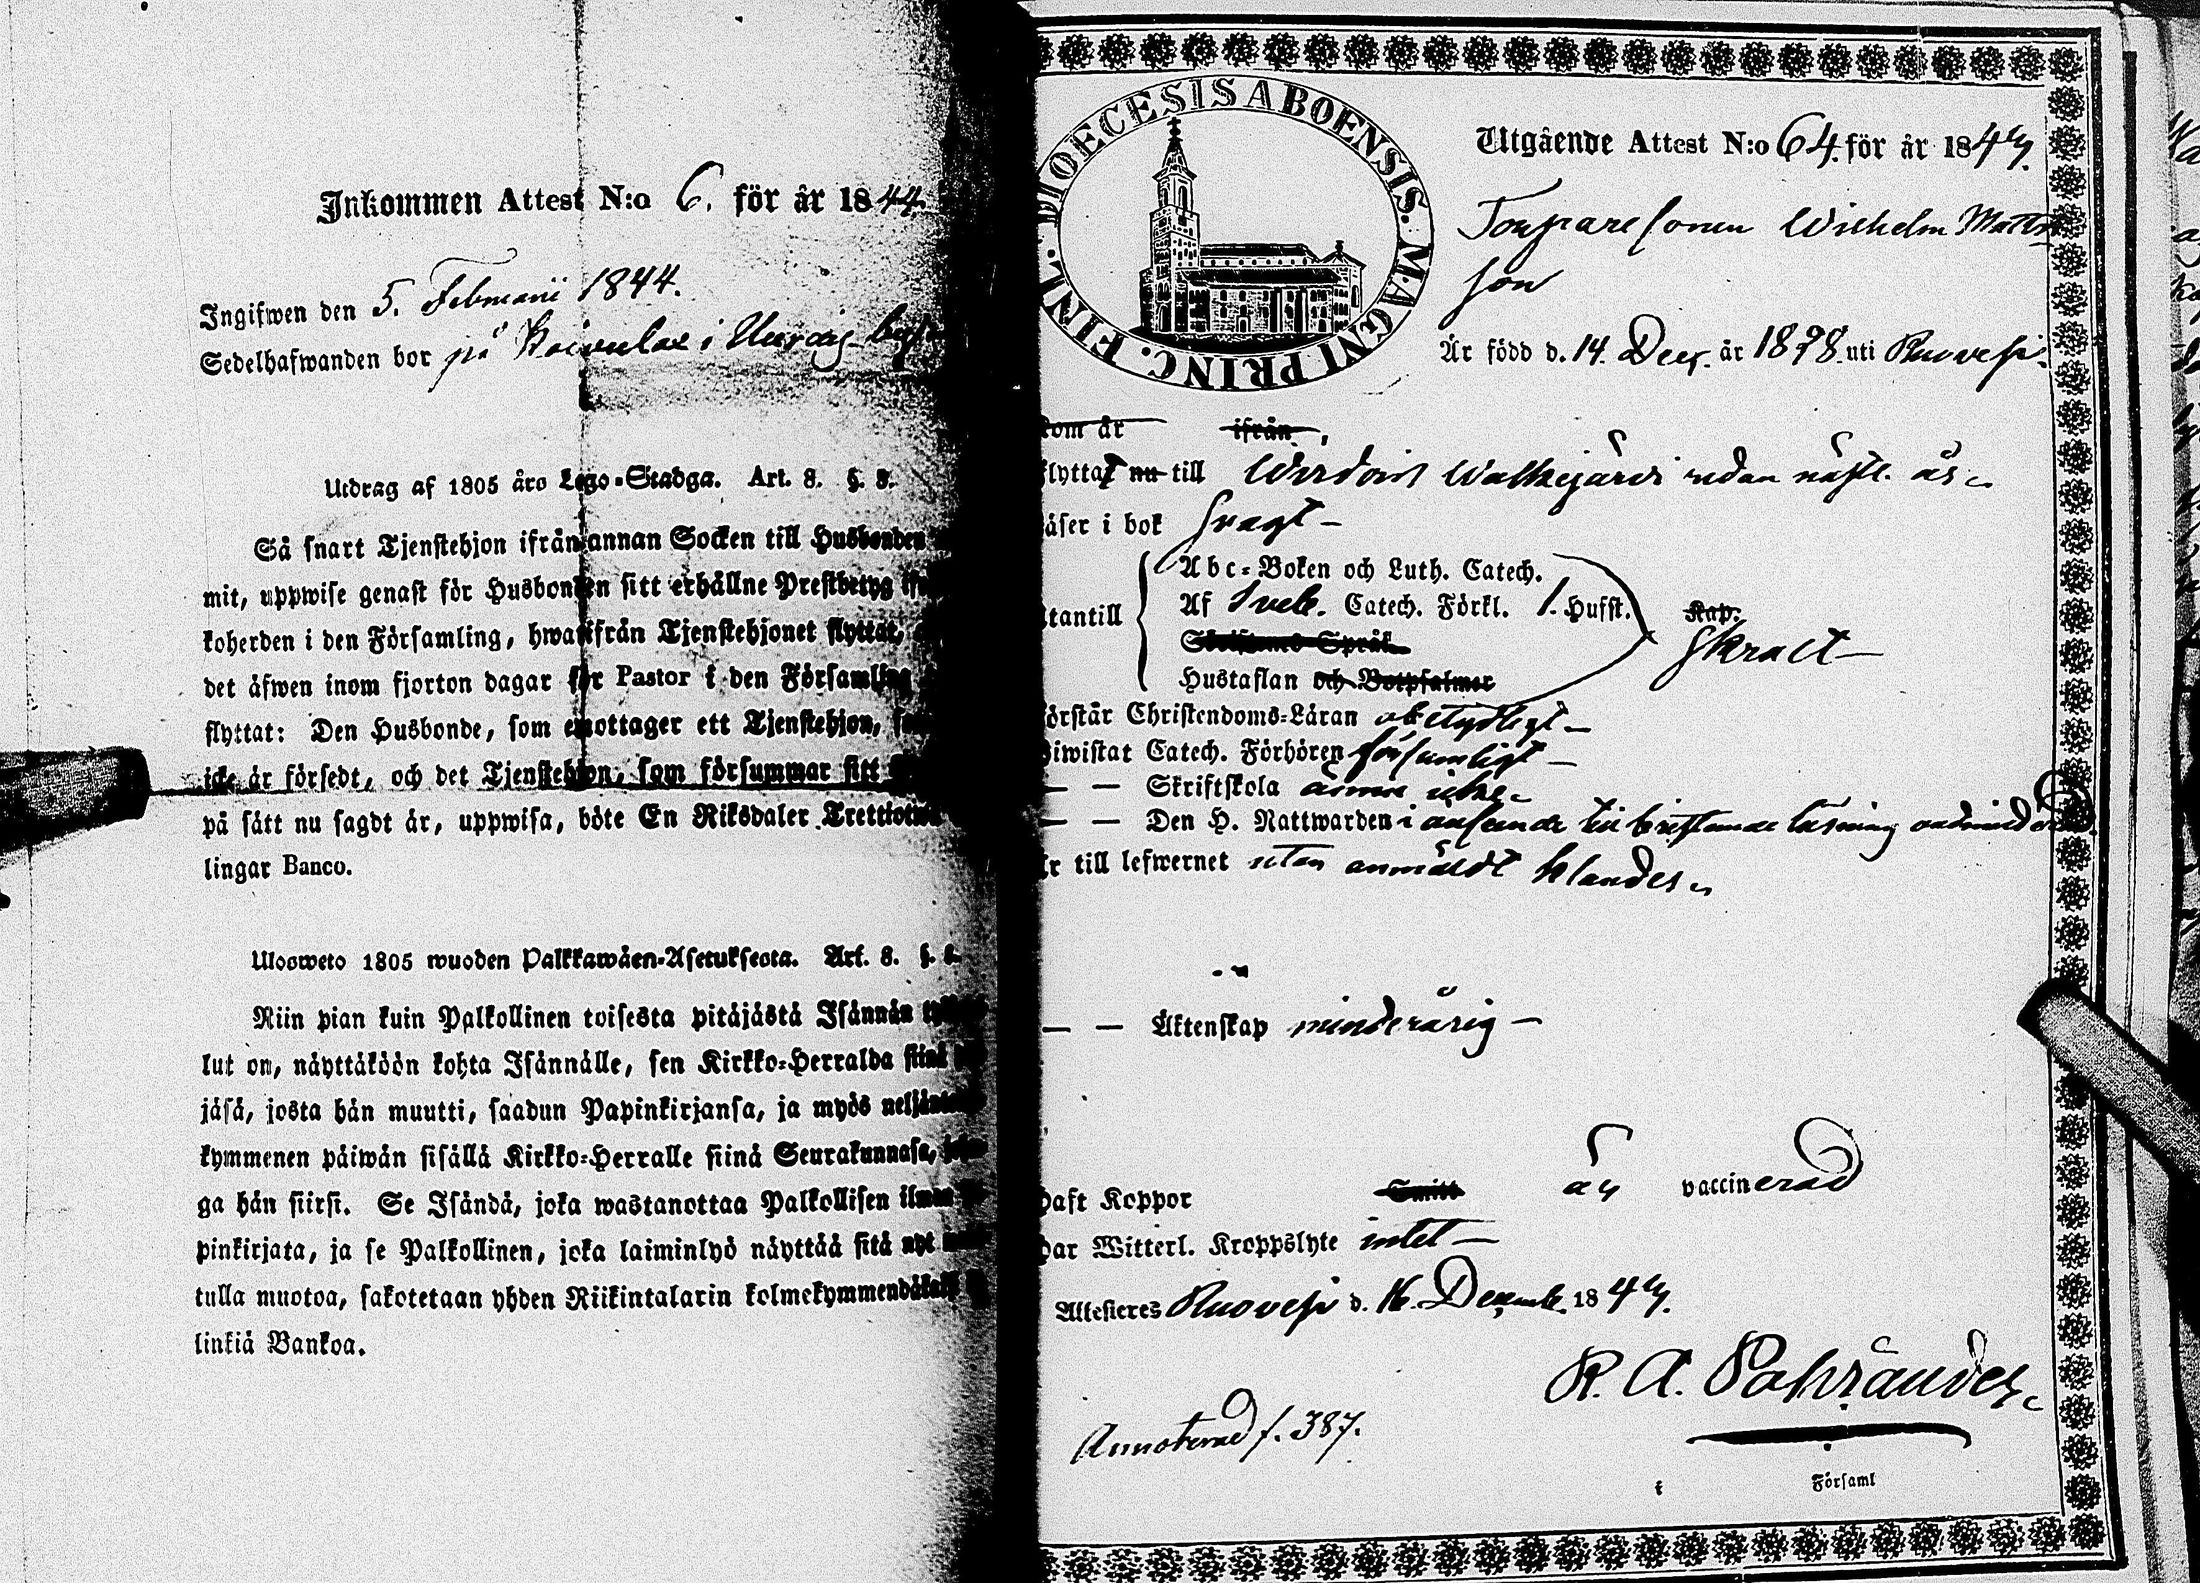 Inkommen Attest N:o 6. för år 1844.
Ingifwen den 5. Februarii 1844.
Sedelhafwanden bor på i
Utdrag af 1805 års Lego-Stadga. Art. 8. §. 8.
Så snart Tjenstehjon ifrån annan Socken till Husbonden
mit, uppwise genast för Husbonden sitt erhållne Prestbetyg
koherden i den Församling, hwarifrån Tjenstehjonet flyttat,
det äfwen inom fjorton dagar för Pastor i den Församling
flyttat: Den Husbonde, som emottager ett Tjenstehjon,
icke är försedt, och det Tjenstehjon, som försummar sitt
på sätt nu sagdt är, uppwisa, böte En Riksdaler
lingar Banco.
Ulosweto 1805 wuoden Palkkawäen-Asetuksesta. Art. 8. §. 8.
Niin pian kuin Palkollinen toisesta pitäjästä Isännän
lut on, näyttäköön kohta Isännälle, sen Kirkko-Herralda siinä
jäsä, josta hän muutti, saadun Papinkirjansa, ja myös
kymmenen päiwän sisällä Kirkko-Herralle siinä Seurakunnasa,
ga hän siirsi. Se Isändä, joka wastanottaa Palkollisen ilman
pinkirjata, ja se Palkollinen, joka laiminlyö näyttää sitä nyt
tulla muotoa, sakotetaan yhden Riikintalarin
linkiä Bankoa.
DIOECESIS ABOENSIS. MAGNI PRINC. FINL.
Utgående Attest N:o 64. för år 1843.
Torparesonen Wilhelm Matts
son
Är född d. 14. Dec. år 1828. uti Ruovesi.
som är ifrån
flyttat nu till Wirdois Walkejärvi sedan nästl. år
läser i bok svagt
Abc-Boken och Luth. Catech.
utantill Af Sveb. Catech. Förkl. 1. Hufst. Kap.
Skriftenes Språk
Hustaflan och Botpsalmer
förstår Christendoms-Läran obetydligt
biwistat Catech. Förhören försumligt
— — Skriftskola ännu icke
— — Den H. Nattwarden i anseende til bristande läsning
är till lefwernet utan anmäldt klander
— — Äktenskap minderårig
haft Koppor Smitt är vaccinerad
har Witterl. Kroppslyte intet
Attesteres Ruovesi d. 16. Decemb. 1843.
R. A.
Annoterad f. 387.
i Församl